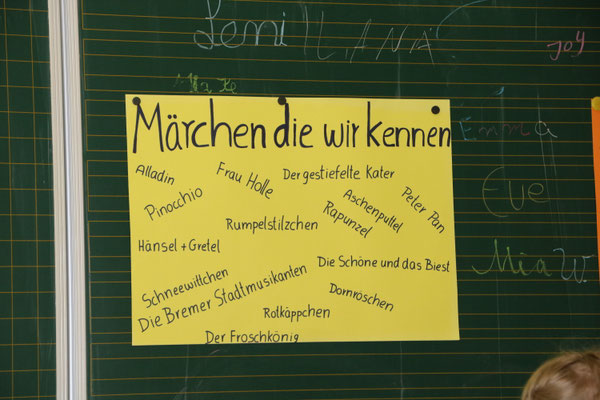 Leni ILANA
Joy
Emma
Eve
Mia W.
Märchen die wir kennen
Alladin
Frau Holle
Der gestiefelte Kater
Pinocchio
Aschenputtel
Peter Pan
Rumpelstilzchen
Rapunzel
Hänsel + Gretel
Die Schöne und das Biest
Schneewittchen
Die Bremer Stadtmusikanten
Dornröschen
Rotkäppchen
Der Froschkönig